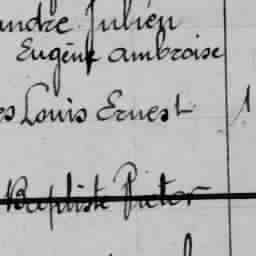 andre Julien
Eugène Ambroise
es Louis Ernest 1
Baptiste Victor